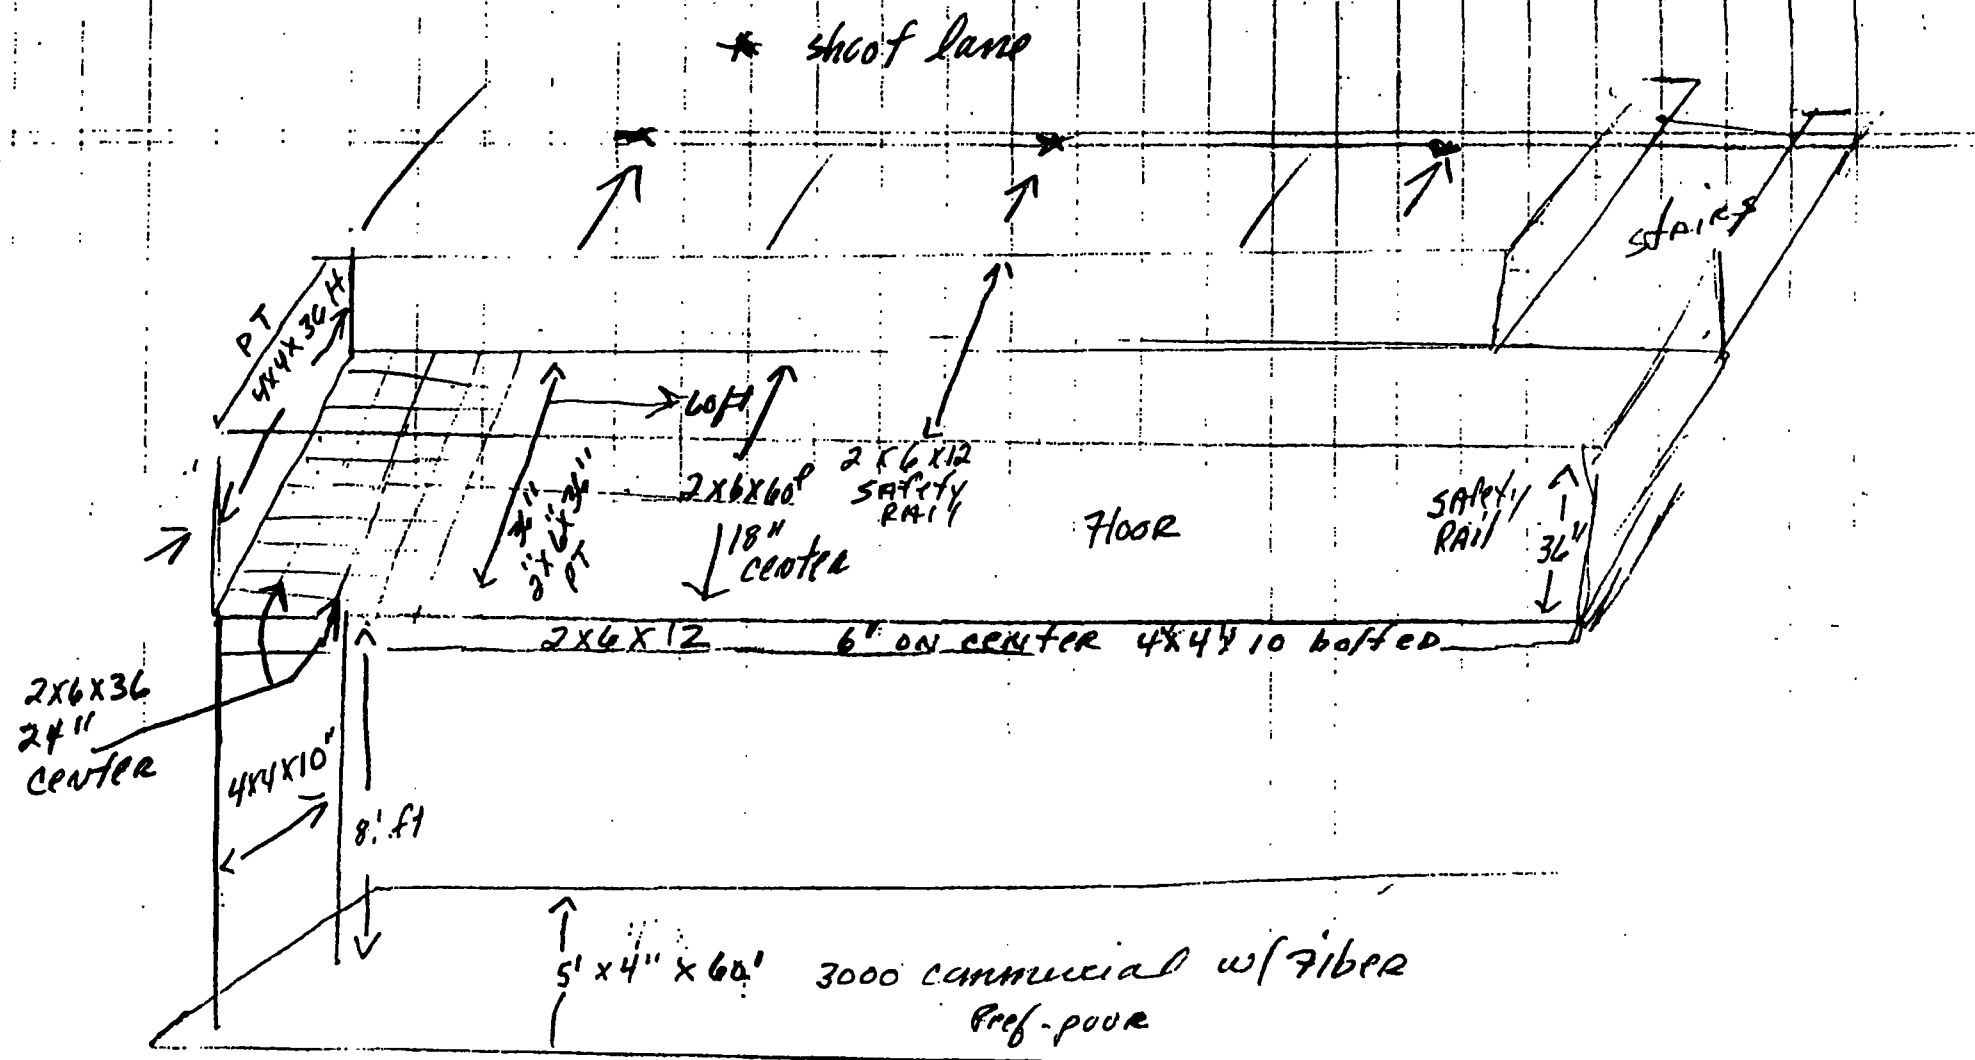 * shoot lane
stairs
PT
4x4x36 H
60ft
2"x6"x36"
PT
2x6x60'
18"
center
2 x 6 x 12
SAfety
RAil
Floor
SAfety
RAil
36"
2x6x12 6" ON center 4"x4"x10 bolted
2x6x36
24"
center
4x4x10"
8' ft
5' x 4" x 60' 3000 commercial w/ Fiber
Pref-pour